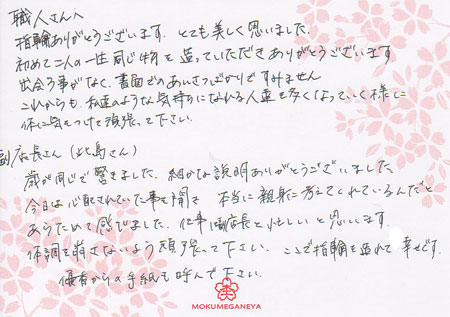 職人さんへ
指輪ありがとうございます。とても美しく思いました。
初めて二人の一生同じ物を造っていただきありがとうございます
出会う事がなく、書面でのあいさつばかりですみません
これからも、私達のような気持ちになれる人達を多くなっていく様に
体に気をつけて頑張って下さい。
副店長さん(比島さん)
歳が同じで驚きました。細かな説明ありがとうございました
今日は心配されていた事を聞き 本当に親身に考えてくれているんだと
あらためて感じました。仕事副店長と忙しいと思います。
体調を崩さないよう頑張って下さい。ここで指輪を造れて幸せです。
優香からの手紙も呼んで下さい。
MOKUMEGANEYA